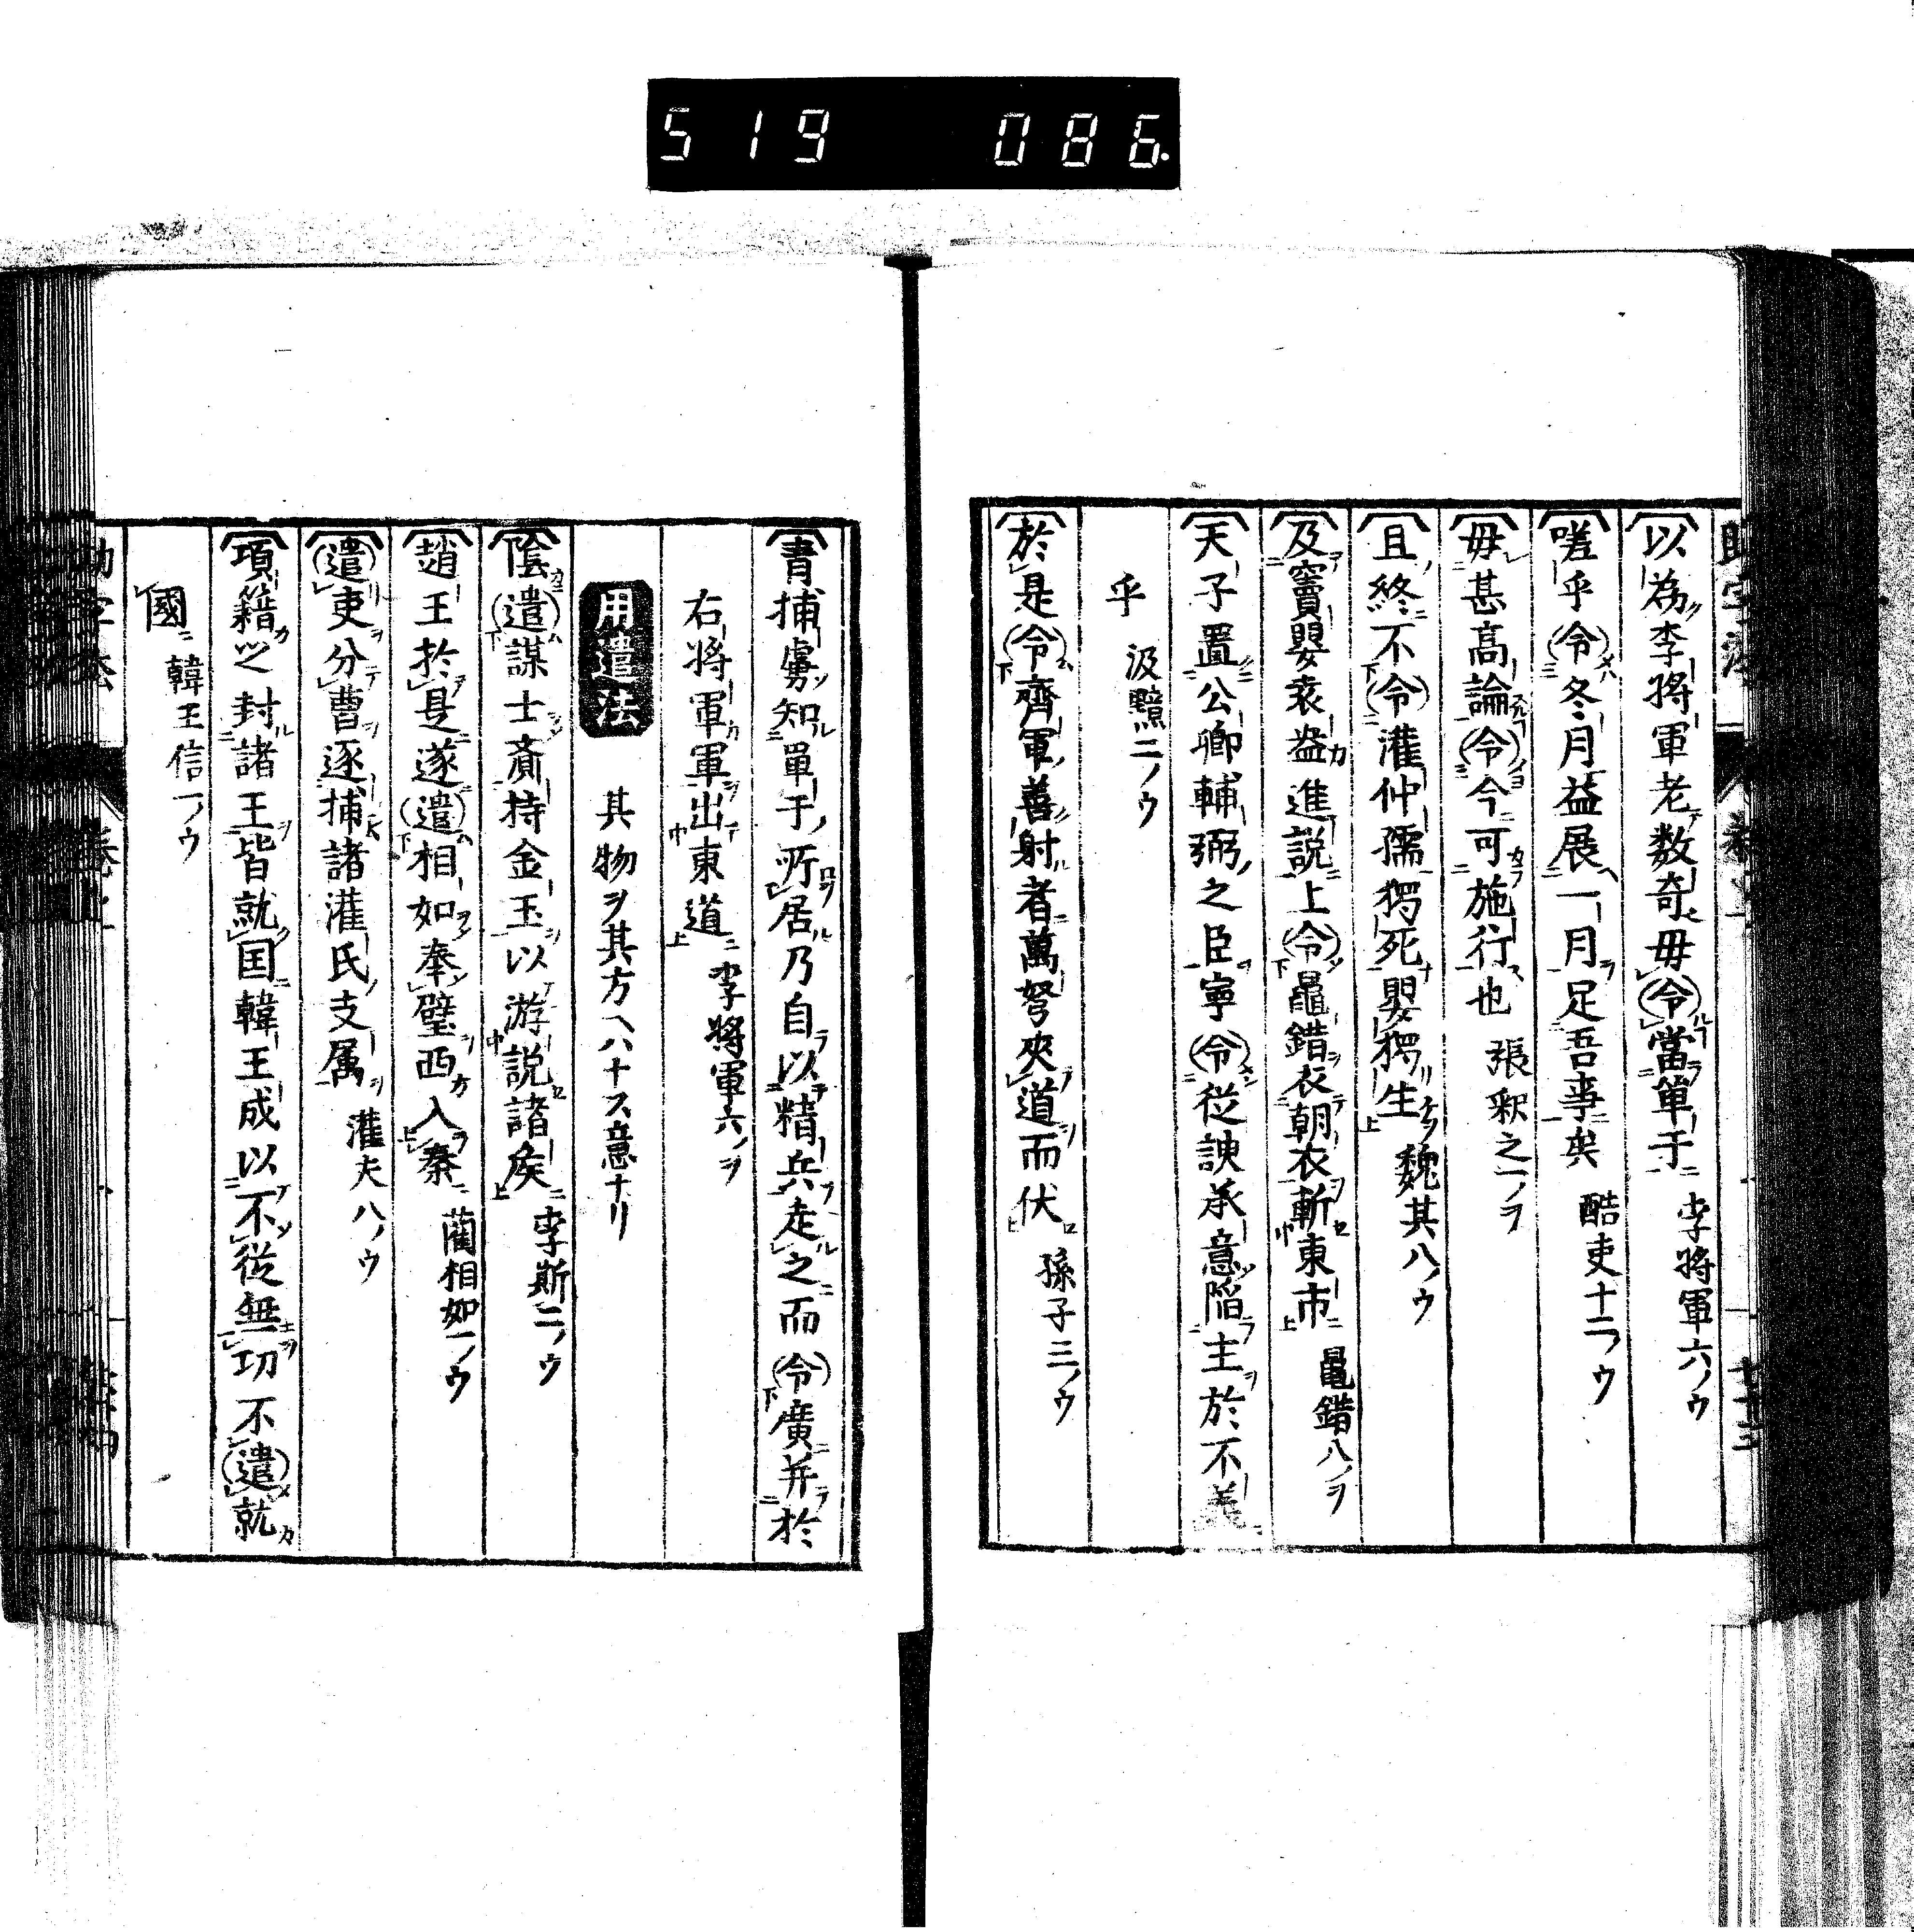 519 086.
以為李將軍老数奇毋令當單于 李將軍六ノウ
嗟乎令冬月益展一月足吾事矣 酷吏十二ノウ
毋甚高論令今可施行也 張釈之一ノヲ
且終不令灌仲孺獨死嬰獨生 魏其八ノウ
及竇嬰袁盎進説上令鼂錯衣朝衣斬東市 鼂錯八ノヲ
天子置公卿輔弼之臣寧令従諛承意陥主於不義
乎 汲黯二ノウ
於是令齊軍善射者萬弩夾道而伏 孫子三ノウ
青捕虜知單于所居乃自以精兵走之而令廣并於
右將軍軍出東道 李將軍六ノヲ
用遣法 其物ヲ其方ヘハナス意ナリ
陰遣謀士齎持金玉以游説諸矦 李斯二ノウ
趙王於是遂遣相如奉璧西入秦 藺相如一ノウ
遣吏分曹逐捕諸灌氏支属 灌夫八ノウ
項籍之封諸王皆就国韓王成以不従無功不遣就
國 韓王信一ノウ